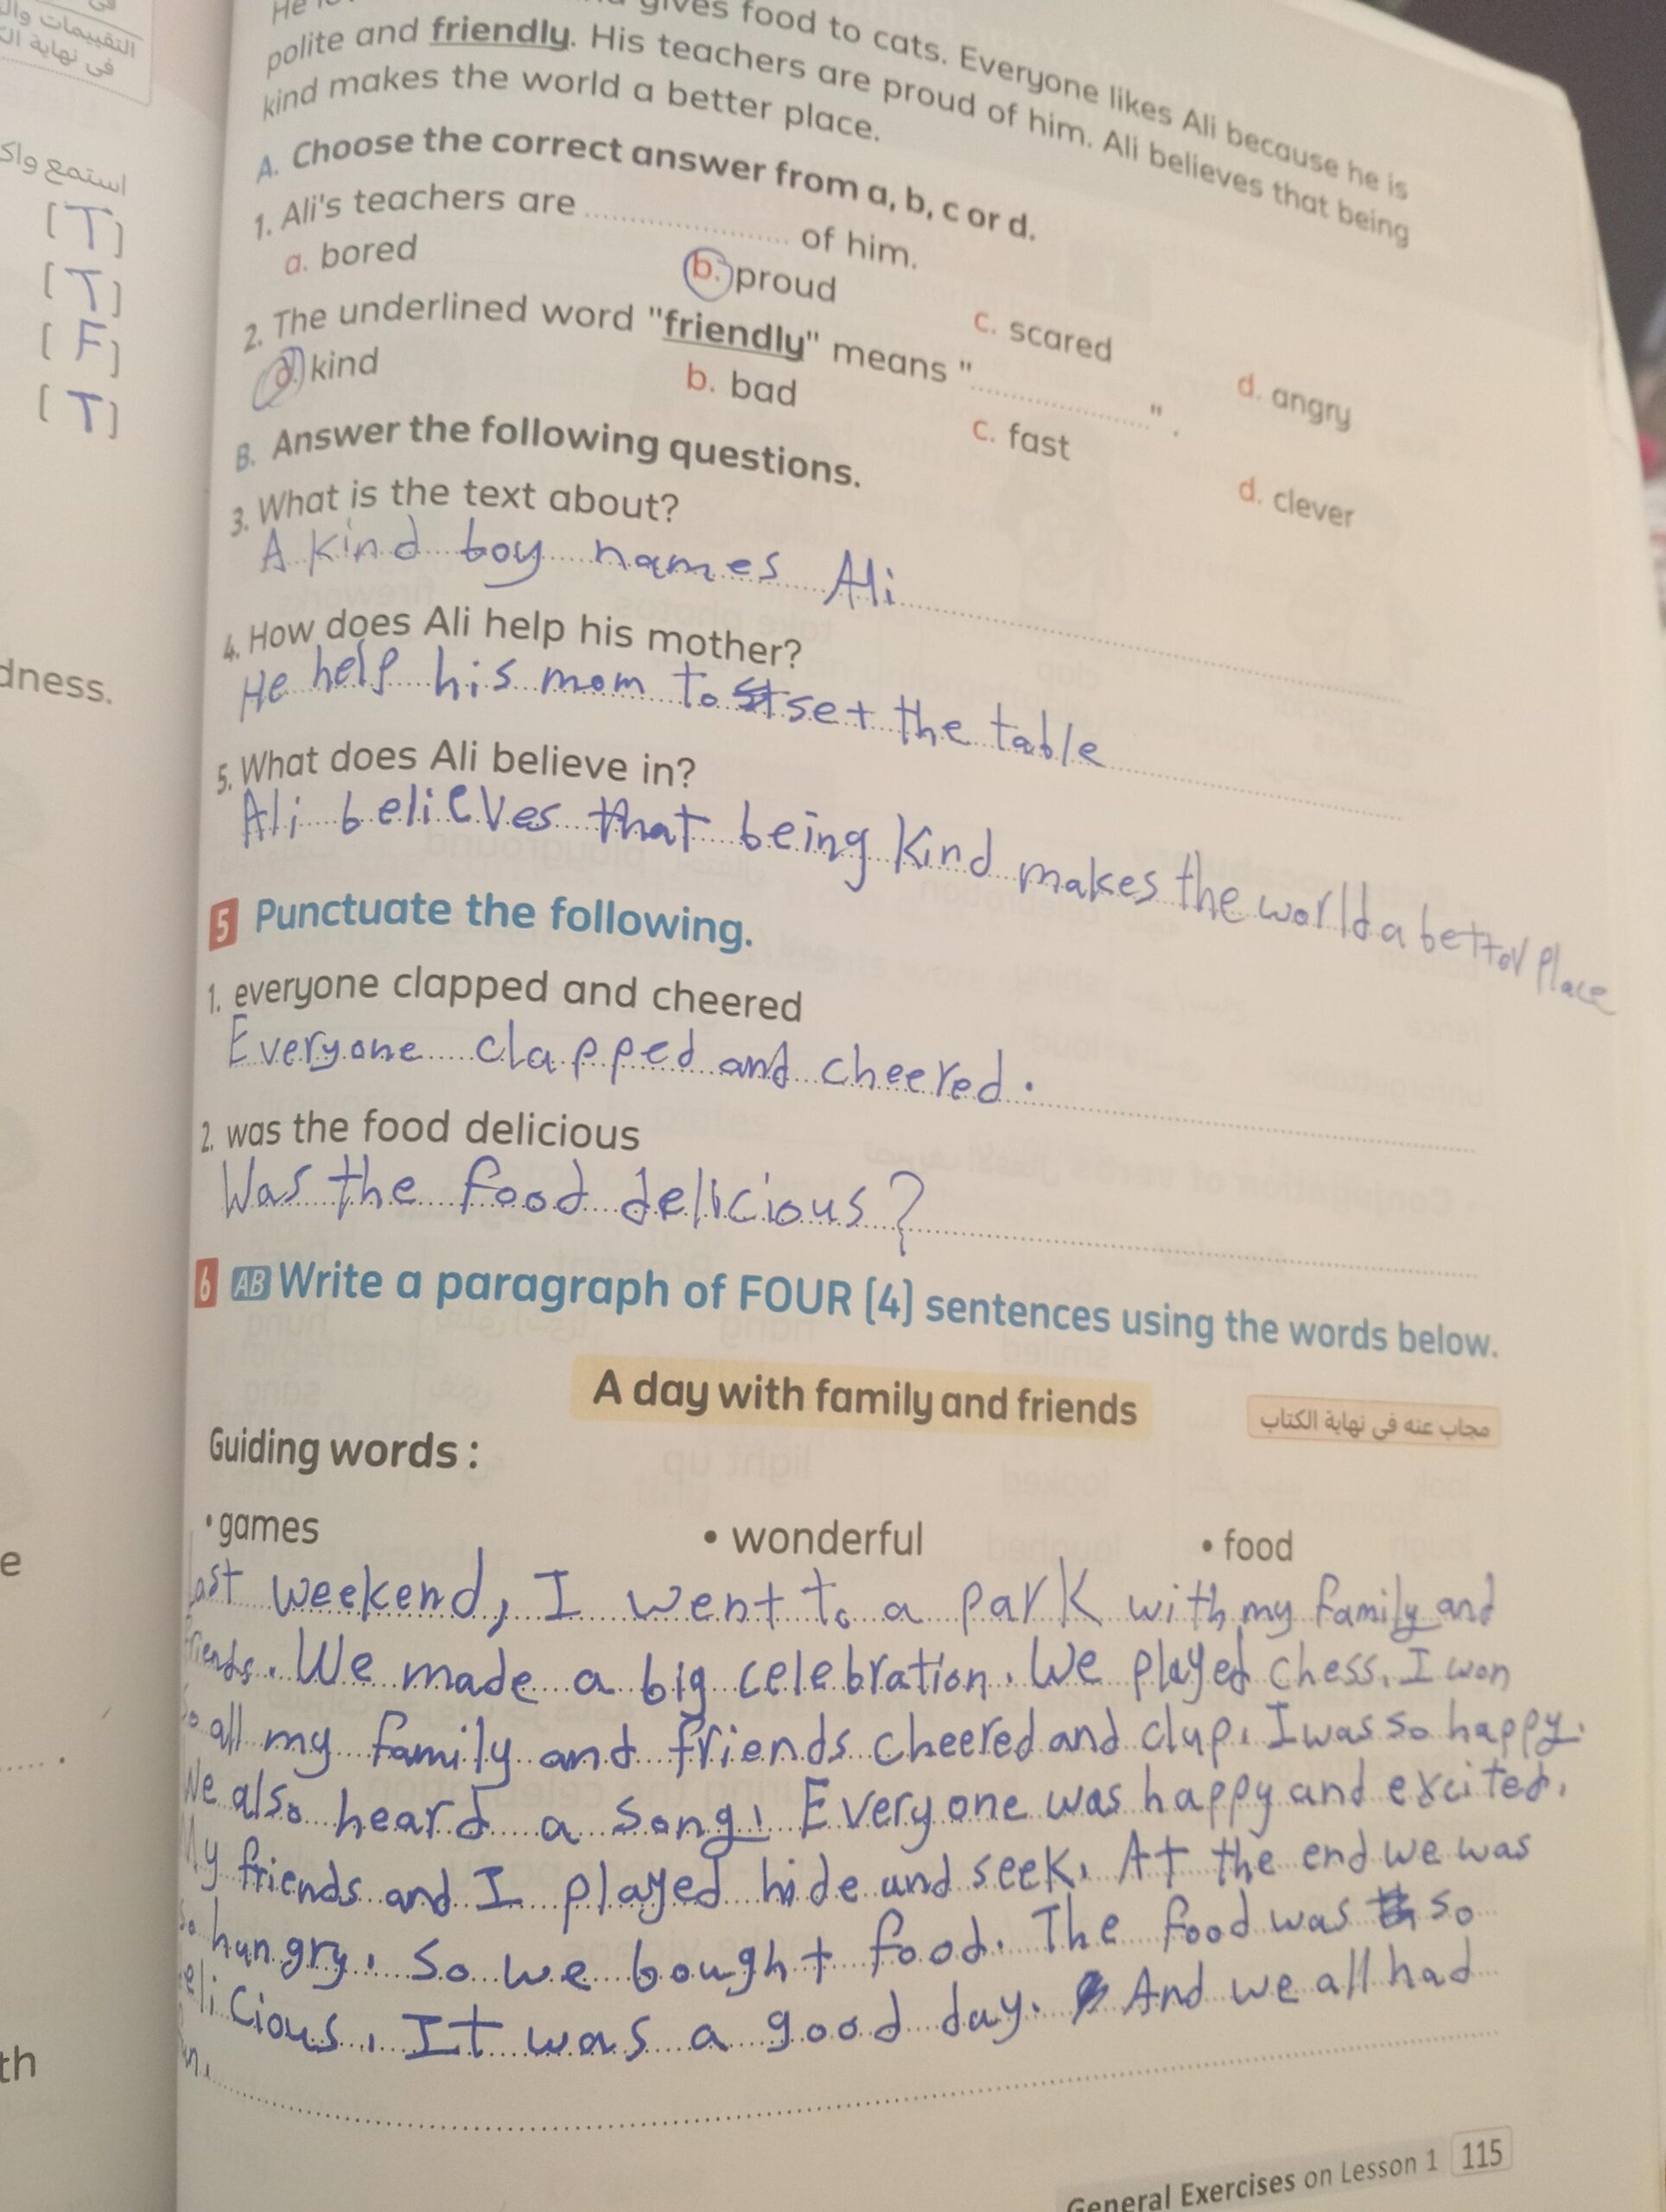 التقييمات وال
فى نهاية ال
استمع واك
[T]
[T]
[F]
[T]
dness.
e
th
He
gives food to cats. Everyone likes Ali because he is
polite and friendly. His teachers are proud of him. Ali believes that being
kind makes the world a better place.
A. Choose the correct answer from a, b, c or d.
1. Ali's teachers are .................... of him.
a. bored b. proud c. scared d. angry
2. The underlined word "friendly" means "....................".
a. kind b. bad c. fast d. clever
B. Answer the following questions.
3. What is the text about?
A kind boy names Ali
4. How does Ali help his mother?
He help his mom to set the table
5. What does Ali believe in?
Ali believes that being kind makes the world a better place
5 Punctuate the following.
1. everyone clapped and cheered
Everyone clapped and cheered.
2. was the food delicious
Was the food delicious?
6 AB Write a paragraph of FOUR (4) sentences using the words below.
A day with family and friends
مجاب عنه فى نهاية الكتاب
Guiding words :
• games • wonderful • food
Last weekend, I went to a park with my family and
friends. We made a big celebration. We played chess. I won
So all my family and friends cheered and clup. I was so happy.
We also heard a song! Everyone was happy and excited.
My friends and I played hide and seek. At the end we was
so hungry. So we bought food. The food was so
delicious. It was a good day. And we all had
General Exercises on Lesson 1 115